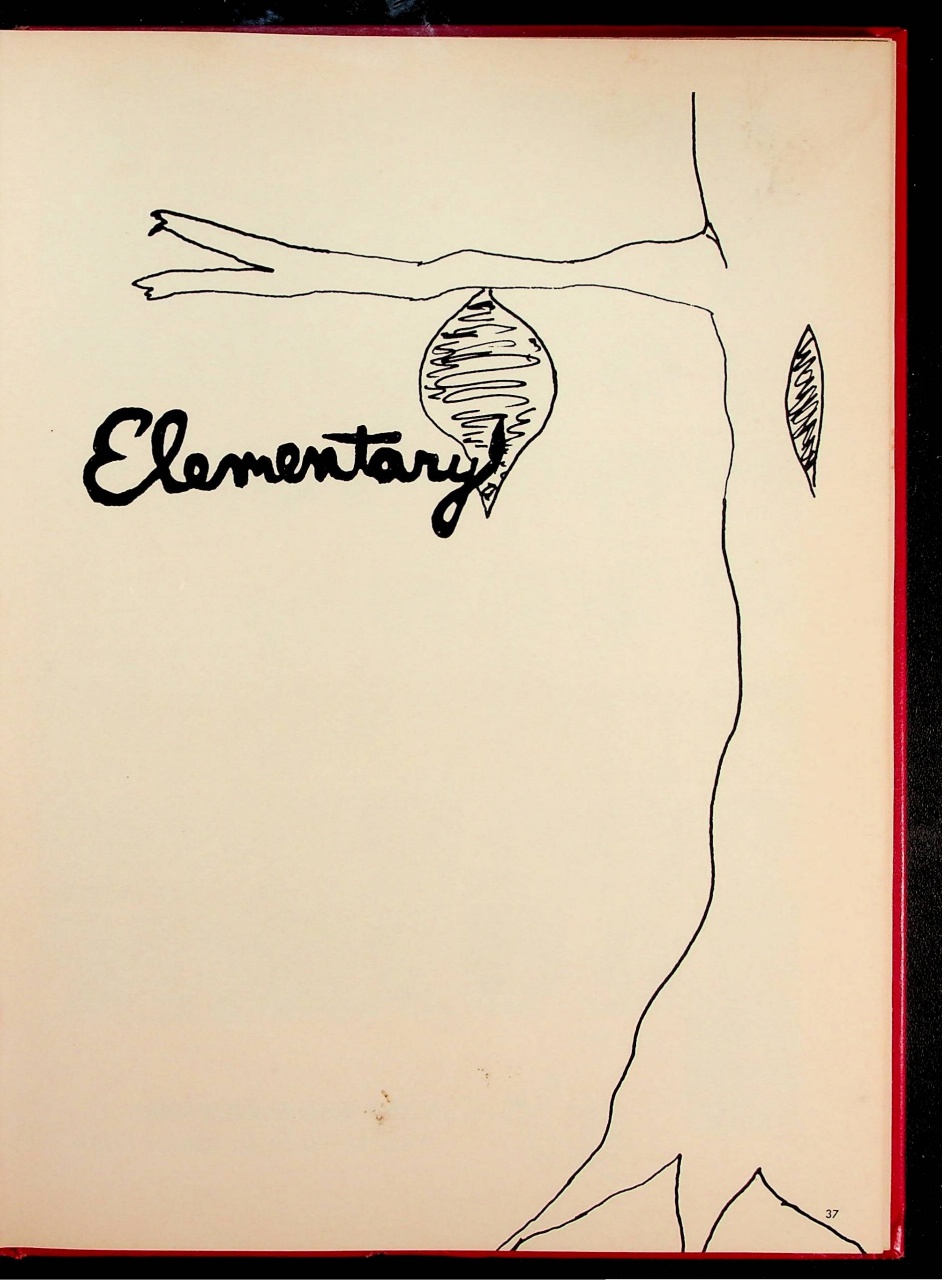 Elementary
37